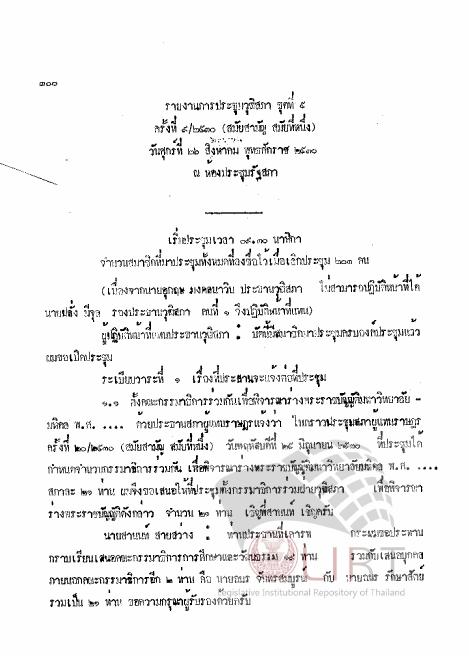 ๓๐๐
รายงานการประชุมวุฒิสภา ชุดที่ ๕
ครั้งที่ ๙/๒๕๓๐ (สมัยสามัญ สมัยที่หนึ่ง)
วันศุกร์ที่ สิงหาคม พุทธศักราช ๒๕๓๐
ณ ห้องประชุมรัฐสภา
เริ่มประชุมเวลา ๐๙.๓๐ นาฬิกา
จำนวนสมาชิกที่มาประชุมทั้งหมดที่ลงชื่อไว้เมื่อเลิกประชุม ๒๐๓ คน
(เนื่องจากนายอุกฤษ มงคลนาวิน ประธานวุฒิสภา ไม่สามารถปฏิบัติหน้าที่ได้
รองประธานวุฒิสภา คนที่ ๑ จึงปฏิบัติหน้าที่แทน)
ผู้ปฏิบัติหน้าที่แทนประธานวุฒิสภา : บัดนี้มีสมาชิกมาประชุมครบองค์ประชุมแล้ว
ผมขอเปิดประชุม
ระเบียบวาระที่ ๑ เรื่องที่ประธานจะแจ้งต่อที่ประชุม
๑.๑ ตั้งคณะกรรมาธิการร่วมกันเพื่อพิจารณาร่างพระราชบัญญัติมหาวิทยาลัย -
มหิดล พ.ศ. .... ด้วยประธานสภาผู้แทนราษฎรแจ้งว่า ในคราวประชุมสภาผู้แทนราษฎร
ครั้งที่ ๒๐/๒๕๓๐ (สมัยสามัญ สมัยที่หนึ่ง) วันพฤหัสบดีที่ ๒๕ มิถุนายน ๒๕๓๐ ที่ประชุมได้
กำหนดจำนวนกรรมาธิการร่วมกัน เพื่อพิจารณาร่างพระราชบัญญัติมหาวิทยาลัยมหิดล พ.ศ. ....
สภาละ ๒๑ ท่าน ผมจึงขอเสนอให้ที่ประชุมตั้งกรรมาธิการร่วมฝ่ายวุฒิสภา เพื่อพิจารณา
ร่างพระราชบัญญัติดังกล่าว จำนวน ๒๑ ท่าน เชิญที่สายเนท์ เชิญครับ
นายสายเนท์ สายสว่าง : ท่านประธานที่เคารพ กระผมขอประทาน
กราบเรียนเสนอคณะกรรมาธิการการศึกษาและวัฒนธรรม ๑๙ ท่าน ร่วมกับเสนอบุคคล
ภายนอกคณะกรรมาธิการอีก ๒ ท่าน คือ นายถนร จันทรสมบูรณ์ กับ นายถนร รักษาสัตย์
รวมเป็น ๒๑ ท่าน ขอความกรุณาผู้รับรองด้วยครับ
LIRT
Legislative Institutional Repository of Thailand